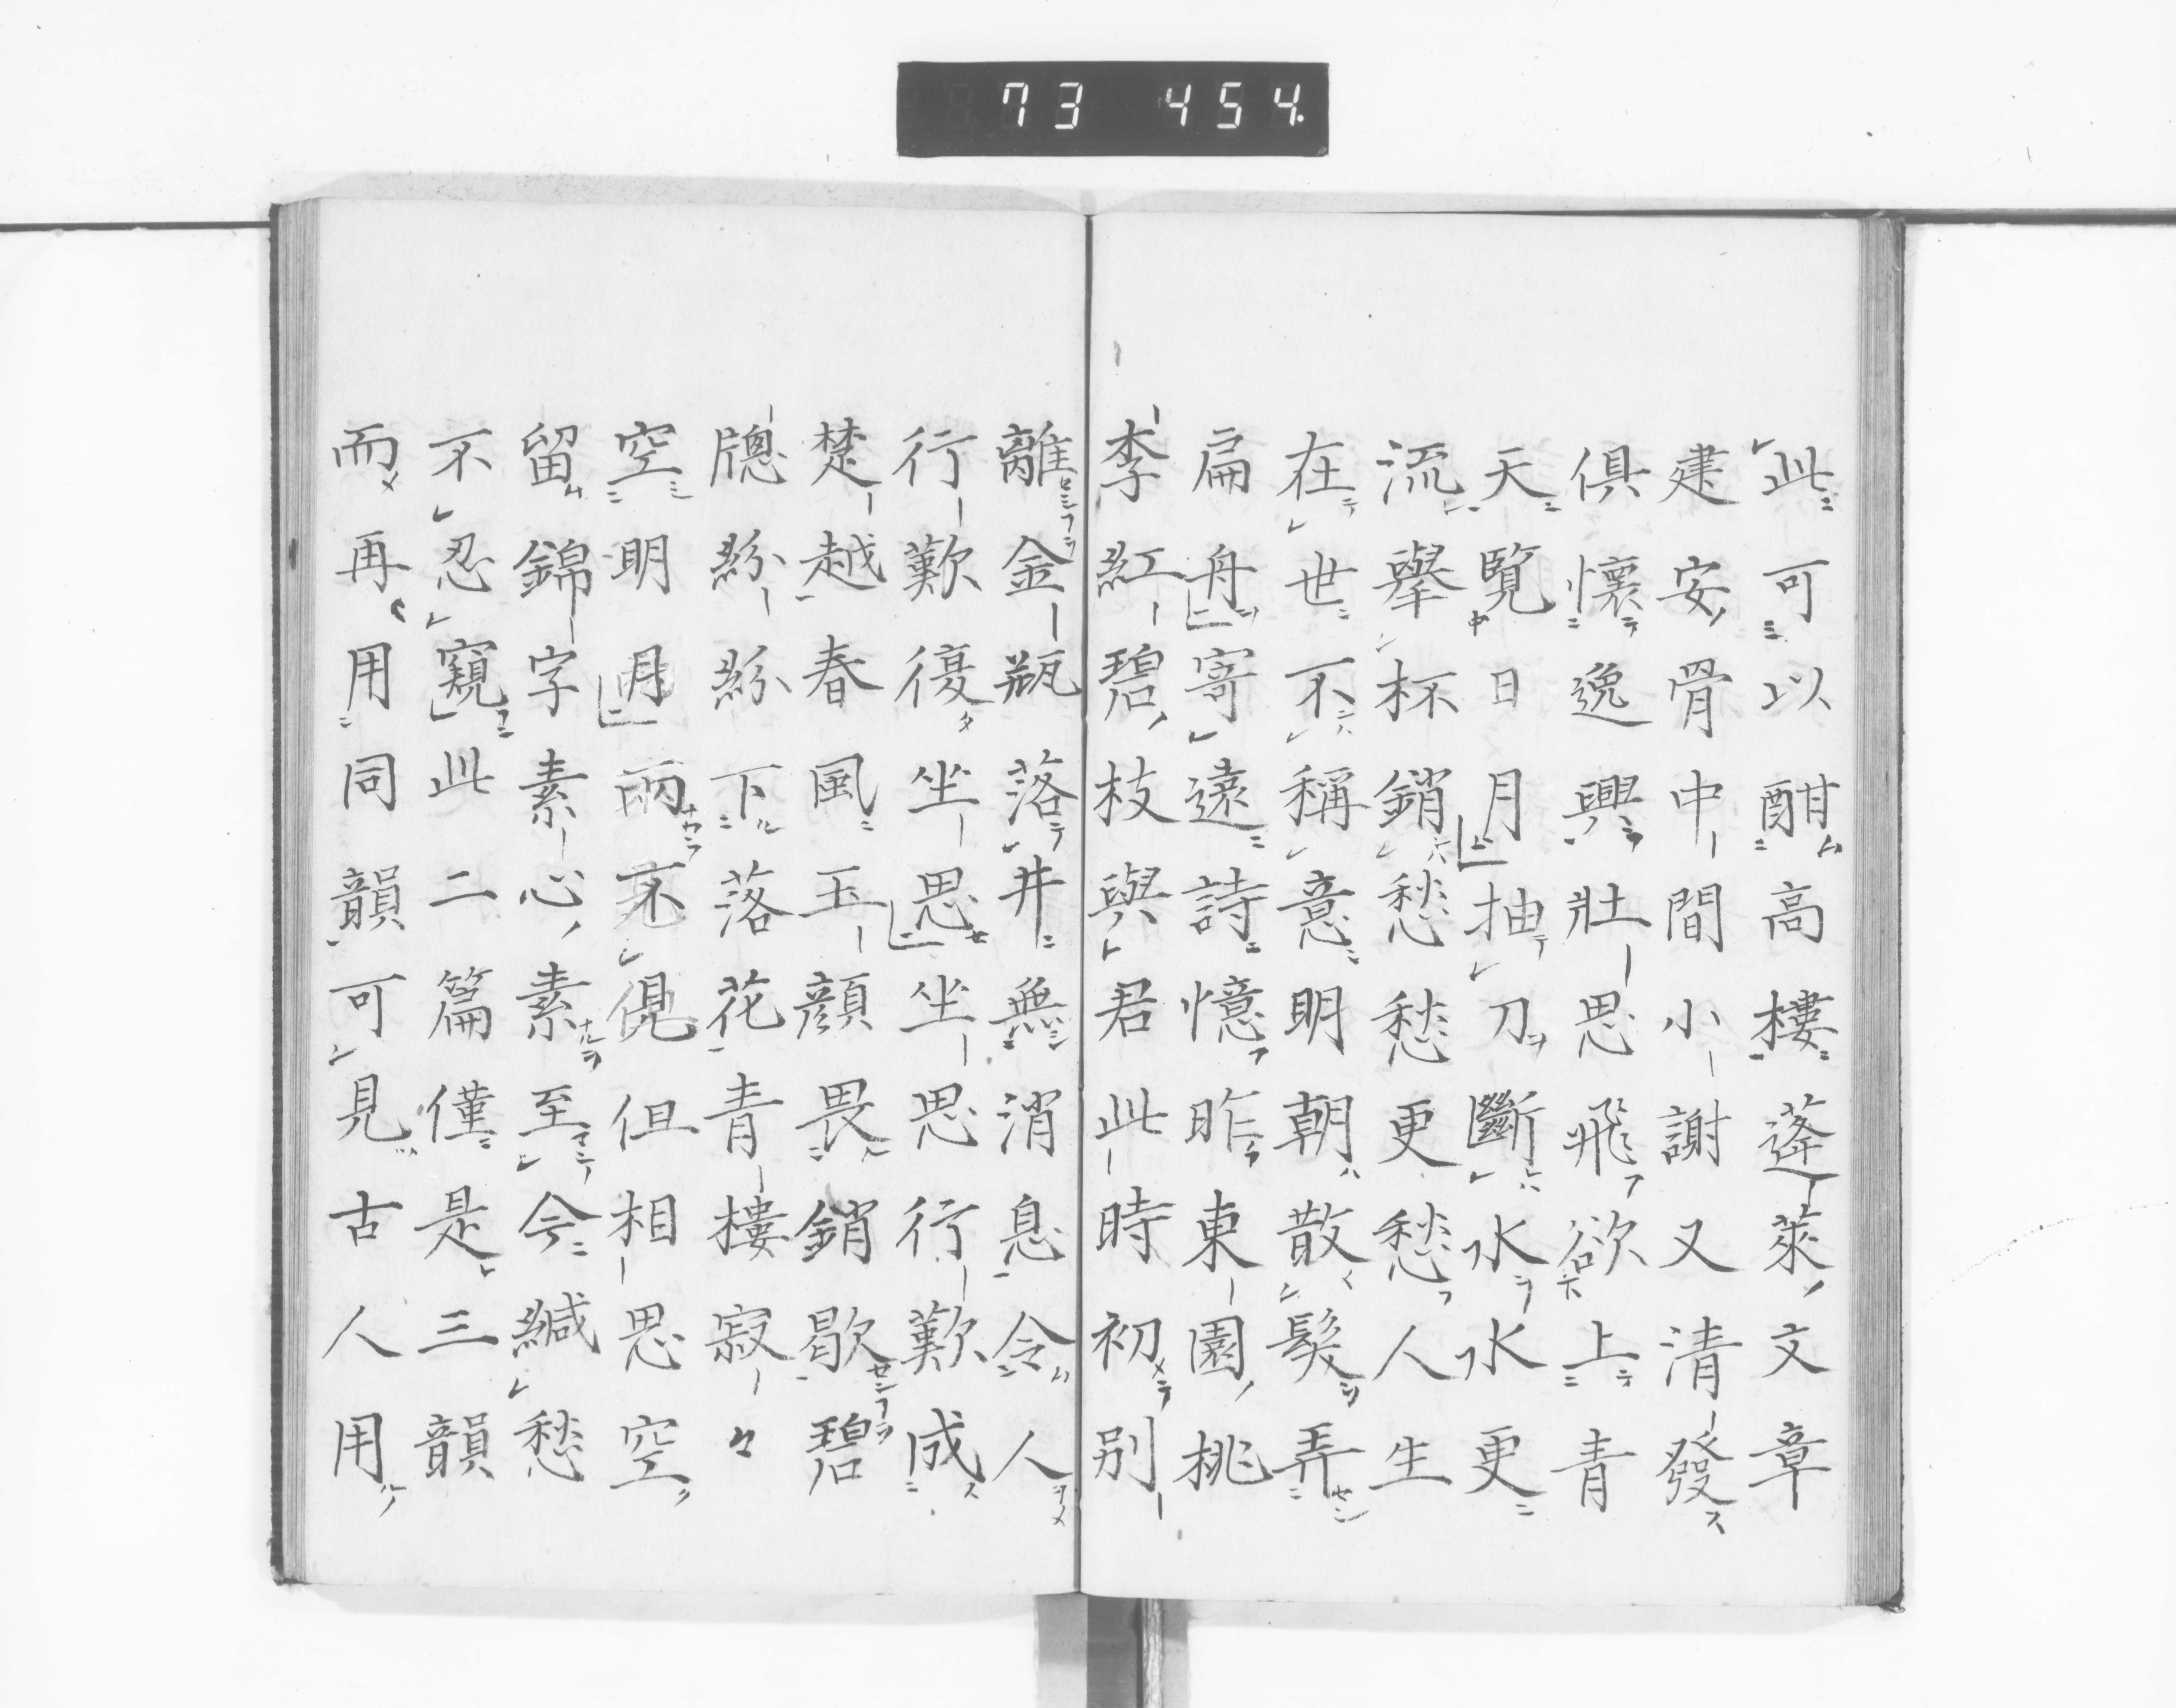 73 454.
此可以酣高樓蓬萊文章
建安骨中間小謝又清發
俱懷逸興壯思飛欲上青
天覽日月抽刀斷水水更
流擧杯銷愁愁更愁人生
在世不稱意明朝散髮弄
扁舟寄遠詩憶昨東園桃
李紅碧枝與君此時初別
離金瓶落井無消息令人
行歎復坐思坐思行歎成
楚越春風玉顏畏銷歇碧
牕紛紛下落花青樓寂々
空明月兩不見但相思空
留錦字素心素至今緘愁
不忍窺此二篇僅是三韻
而再用同韻可見古人用